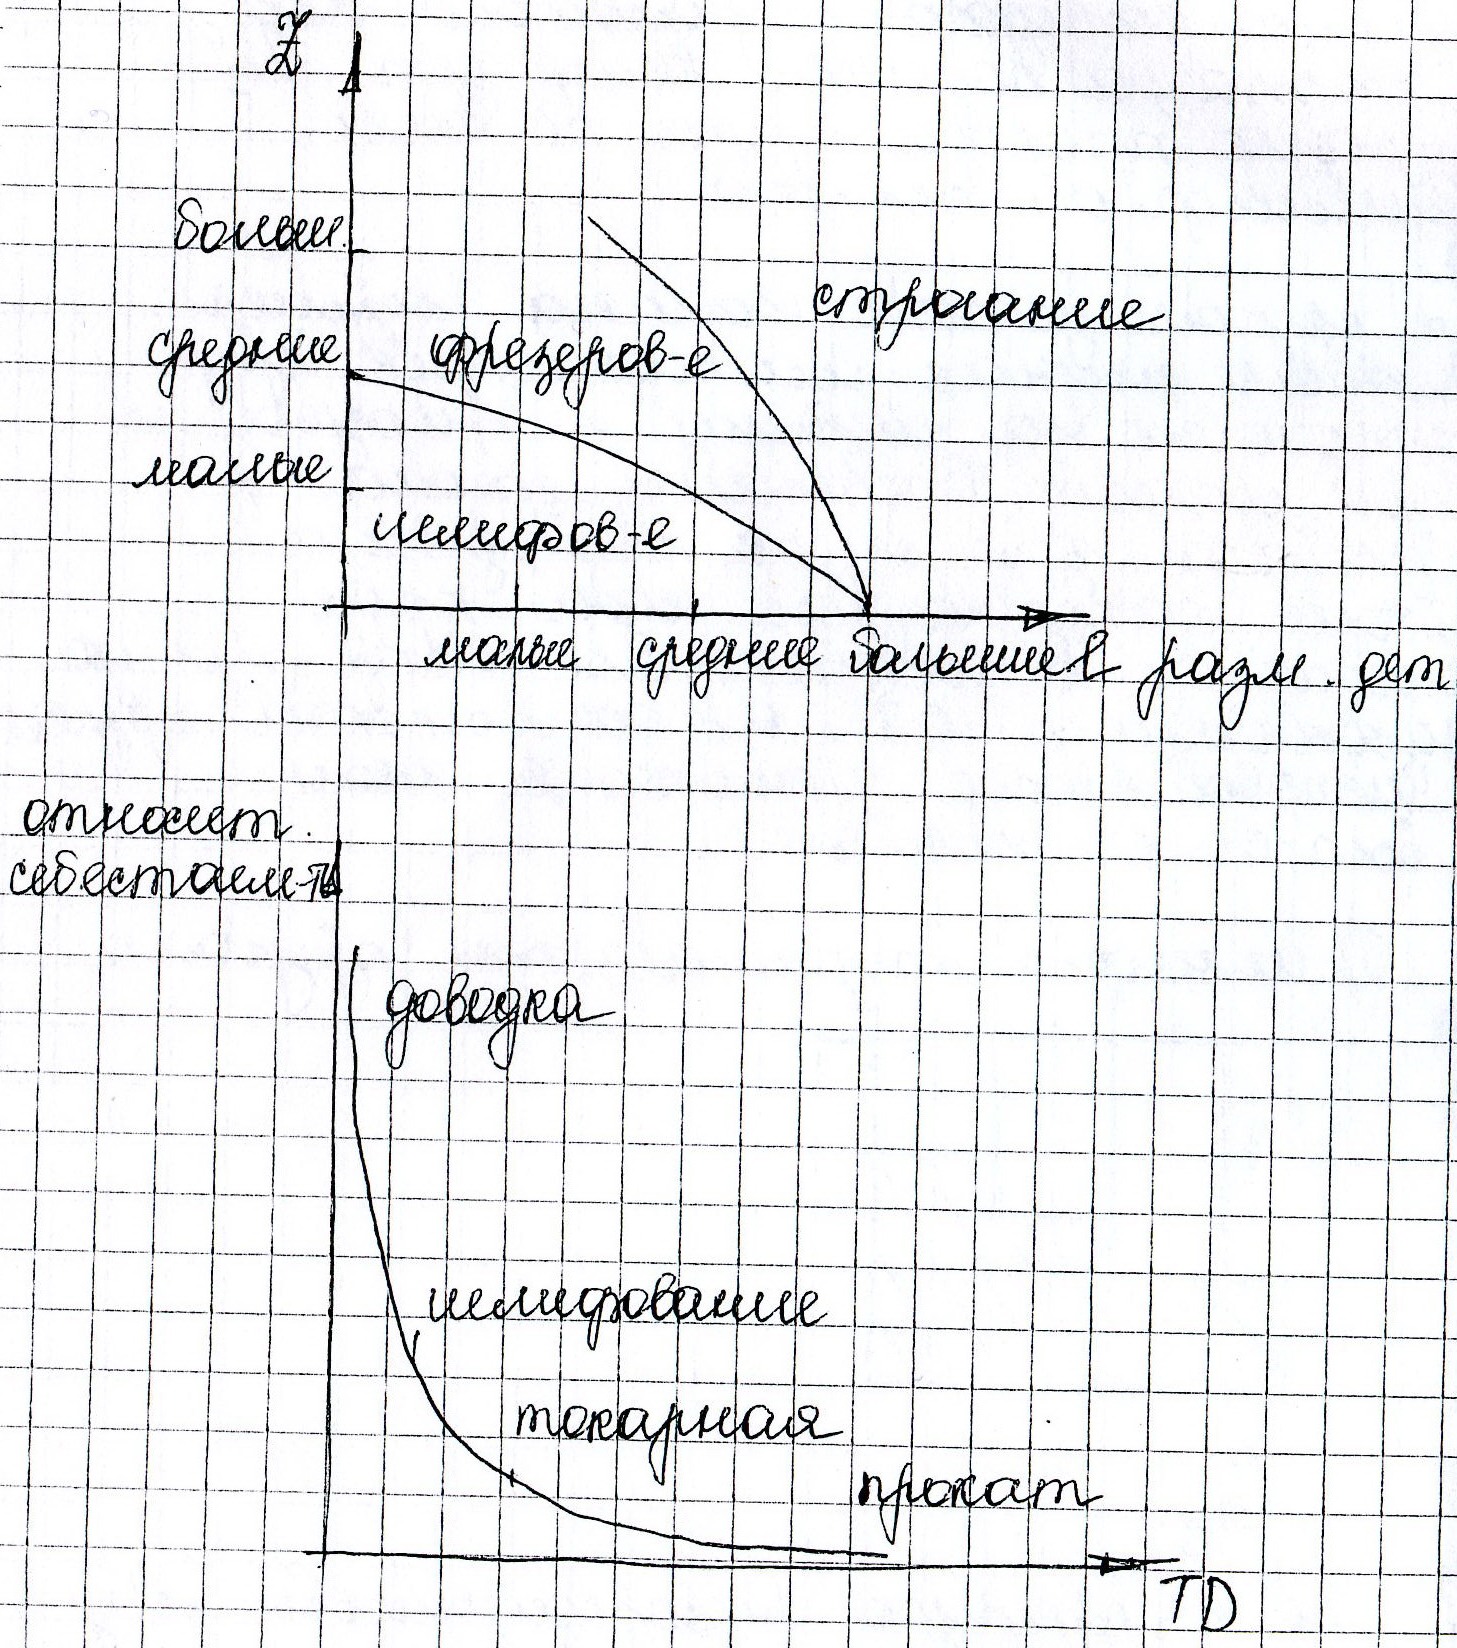 Z
больш.
строгание
средние фрезеров-е
малые
шлифов-е
малые средние большие l разм. дет
относит.
себестоим-ть
доводка
шлифование
токарная
прокат
TD